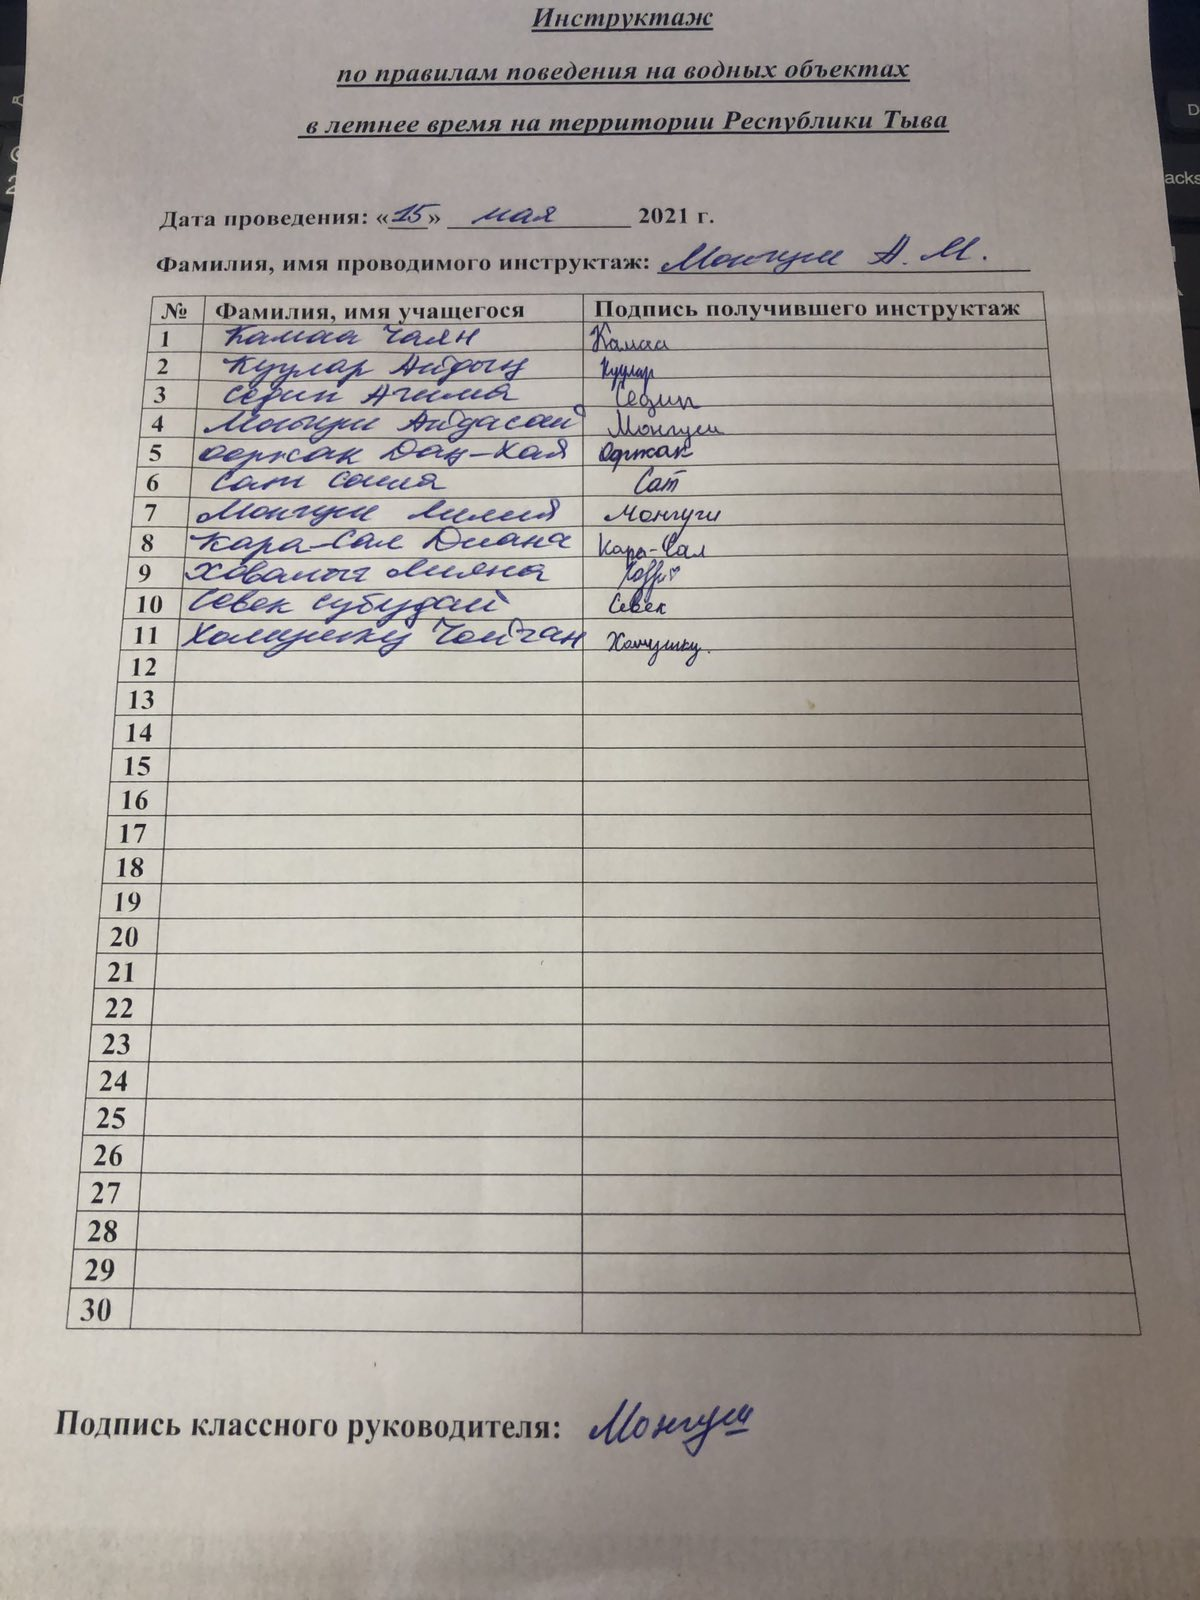 Инструктаж
по правилам поведения на водных объектах
в летнее время на территории Республики Тыва
Дата проведения: «15» мая 2021 г.
Фамилия, имя проводимого инструктаж: Монгуш А. М.
№ Фамилия, имя учащегося Подпись получившего инструктаж
1 Камаа Чаян Камаа
2 Куулар Айдың Куулар
3 Седип Ачима Седип
4 Монгуш Айдасай Монгуш
5 Ооржак Даң-Хая Ооржак
6 Сат Саша Сат
7 Монгуш Лилия Монгуш
8 Кара-Сал Диана Кара-Сал
9 Ховалыг Лияна
10 Севек Субудай Севек
11 Хомушку Чойган Хомушку.
12
13
14
15
16
17
18
19
20
21
22
23
24
25
26
27
28
29
30
Подпись классного руководителя: Монгуш